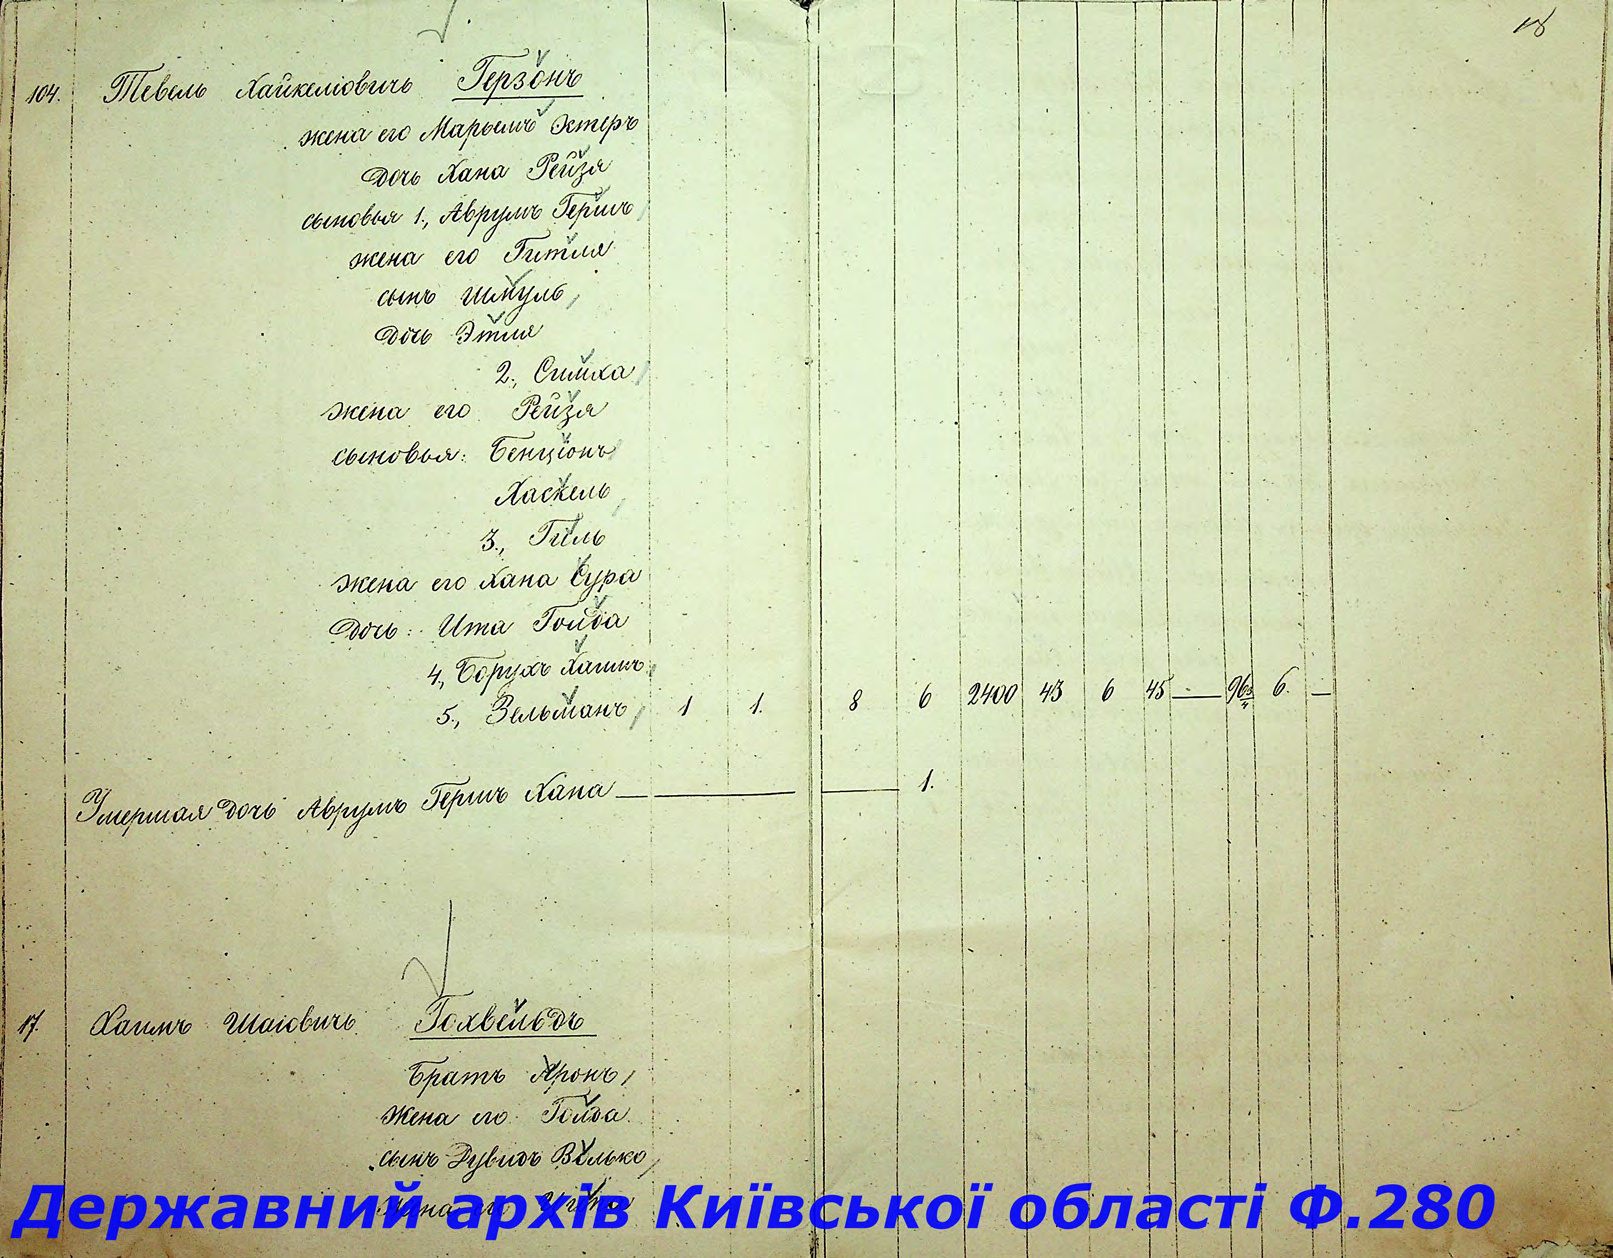 18
104. Тевель Хайкелiовичъ Герзонъ
жена его Марьемъ Эстеръ
дочь Хана Рейзя
сыновья 1., Аврумъ Гершъ
жена его Гитля
сынъ Шмуль
дочь Этля
2., Симха
жена его Рейзя
сыновья: Бенцiонъ
Хаскель
3., Гиль
жена его Хана Сура
дочь: Ита Голда
4., Борухъ Хаимъ
5., Зельманъ 1 1. 8 6 2400 43 6 45 — 96 3/4 6. —
Умершая дочь Аврумъ Гершъ Хана — 1.
17. Хаимъ Шаiовичъ Гохвельдъ
Братъ Аронъ
жена его Голда
сынъ Дувидъ Волько
жена его
Державний архів Київської області Ф.280